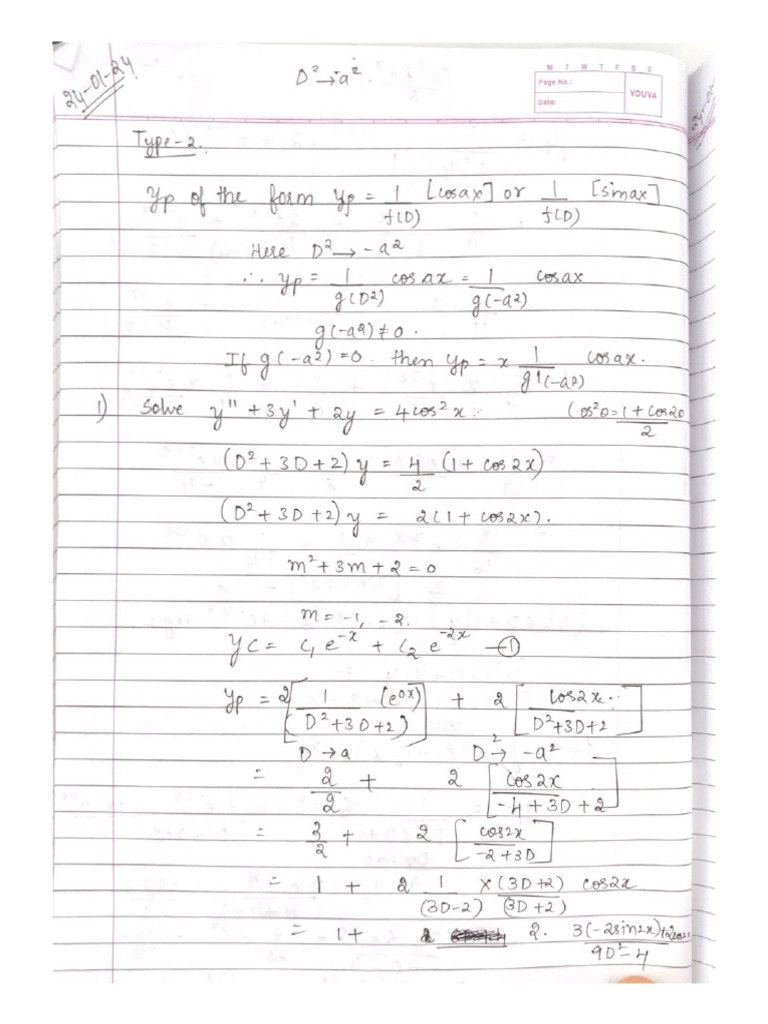 24-01-24
D² → -a².
M T W T F S S
Page No.:
Date:
YOUVA
Type-2.
yp of the form yp = 1/f(D) [cosax] or 1/f(D) [sinax]
Here D² → -a²
∴ yp = 1/g(D²) cosax = 1/g(-a²) cosax
g(-a²) ≠ 0.
If g(-a²) = 0. then yp = x 1/g'(-a²) cosax.
1) Solve y'' + 3y' + 2y = 4cos²x. Cos²θ = 1 + cos2θ/2
(D² + 3D + 2) y = 4/2 (1 + cos2x)
(D² + 3D + 2) y = 2(1 + cos2x).
m² + 3m + 2 = 0
m = -1, -2.
yc = c₁ e^-x + c₂ e^-2x —①
yp = 2[1/(D² + 3D + 2) (e^0x)] + 2[cos2x/D² + 3D + 2]
D → a D² → -a²
= 2/2 + 2[cos2x/-4 + 3D + 2]
= 2/2 + 2[cos2x/-2 + 3D]
= 1 + 2 1/(3D-2) × (3D+2)/(3D+2) cos2x
= 1 + 2. 3(-2sin2x) + 2cos2x/9D² - 4